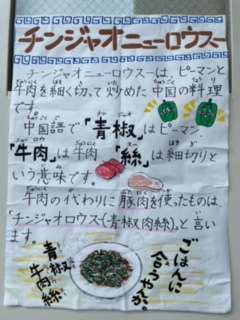 チンジャオニューロウスー
チンジャオニューロウスーは、ピーマンと
牛肉を細く切って炒めた中国の料理
です。
中国語で「青椒」はピーマン、
「牛肉」は牛肉「絲」は細切りと
いう意味です。
牛肉の代わりに豚肉を使ったものは
「チンジャオロウスー(青椒肉絲)」と言い
ます。
青椒
牛肉絲
ごはんに
合うヤか。